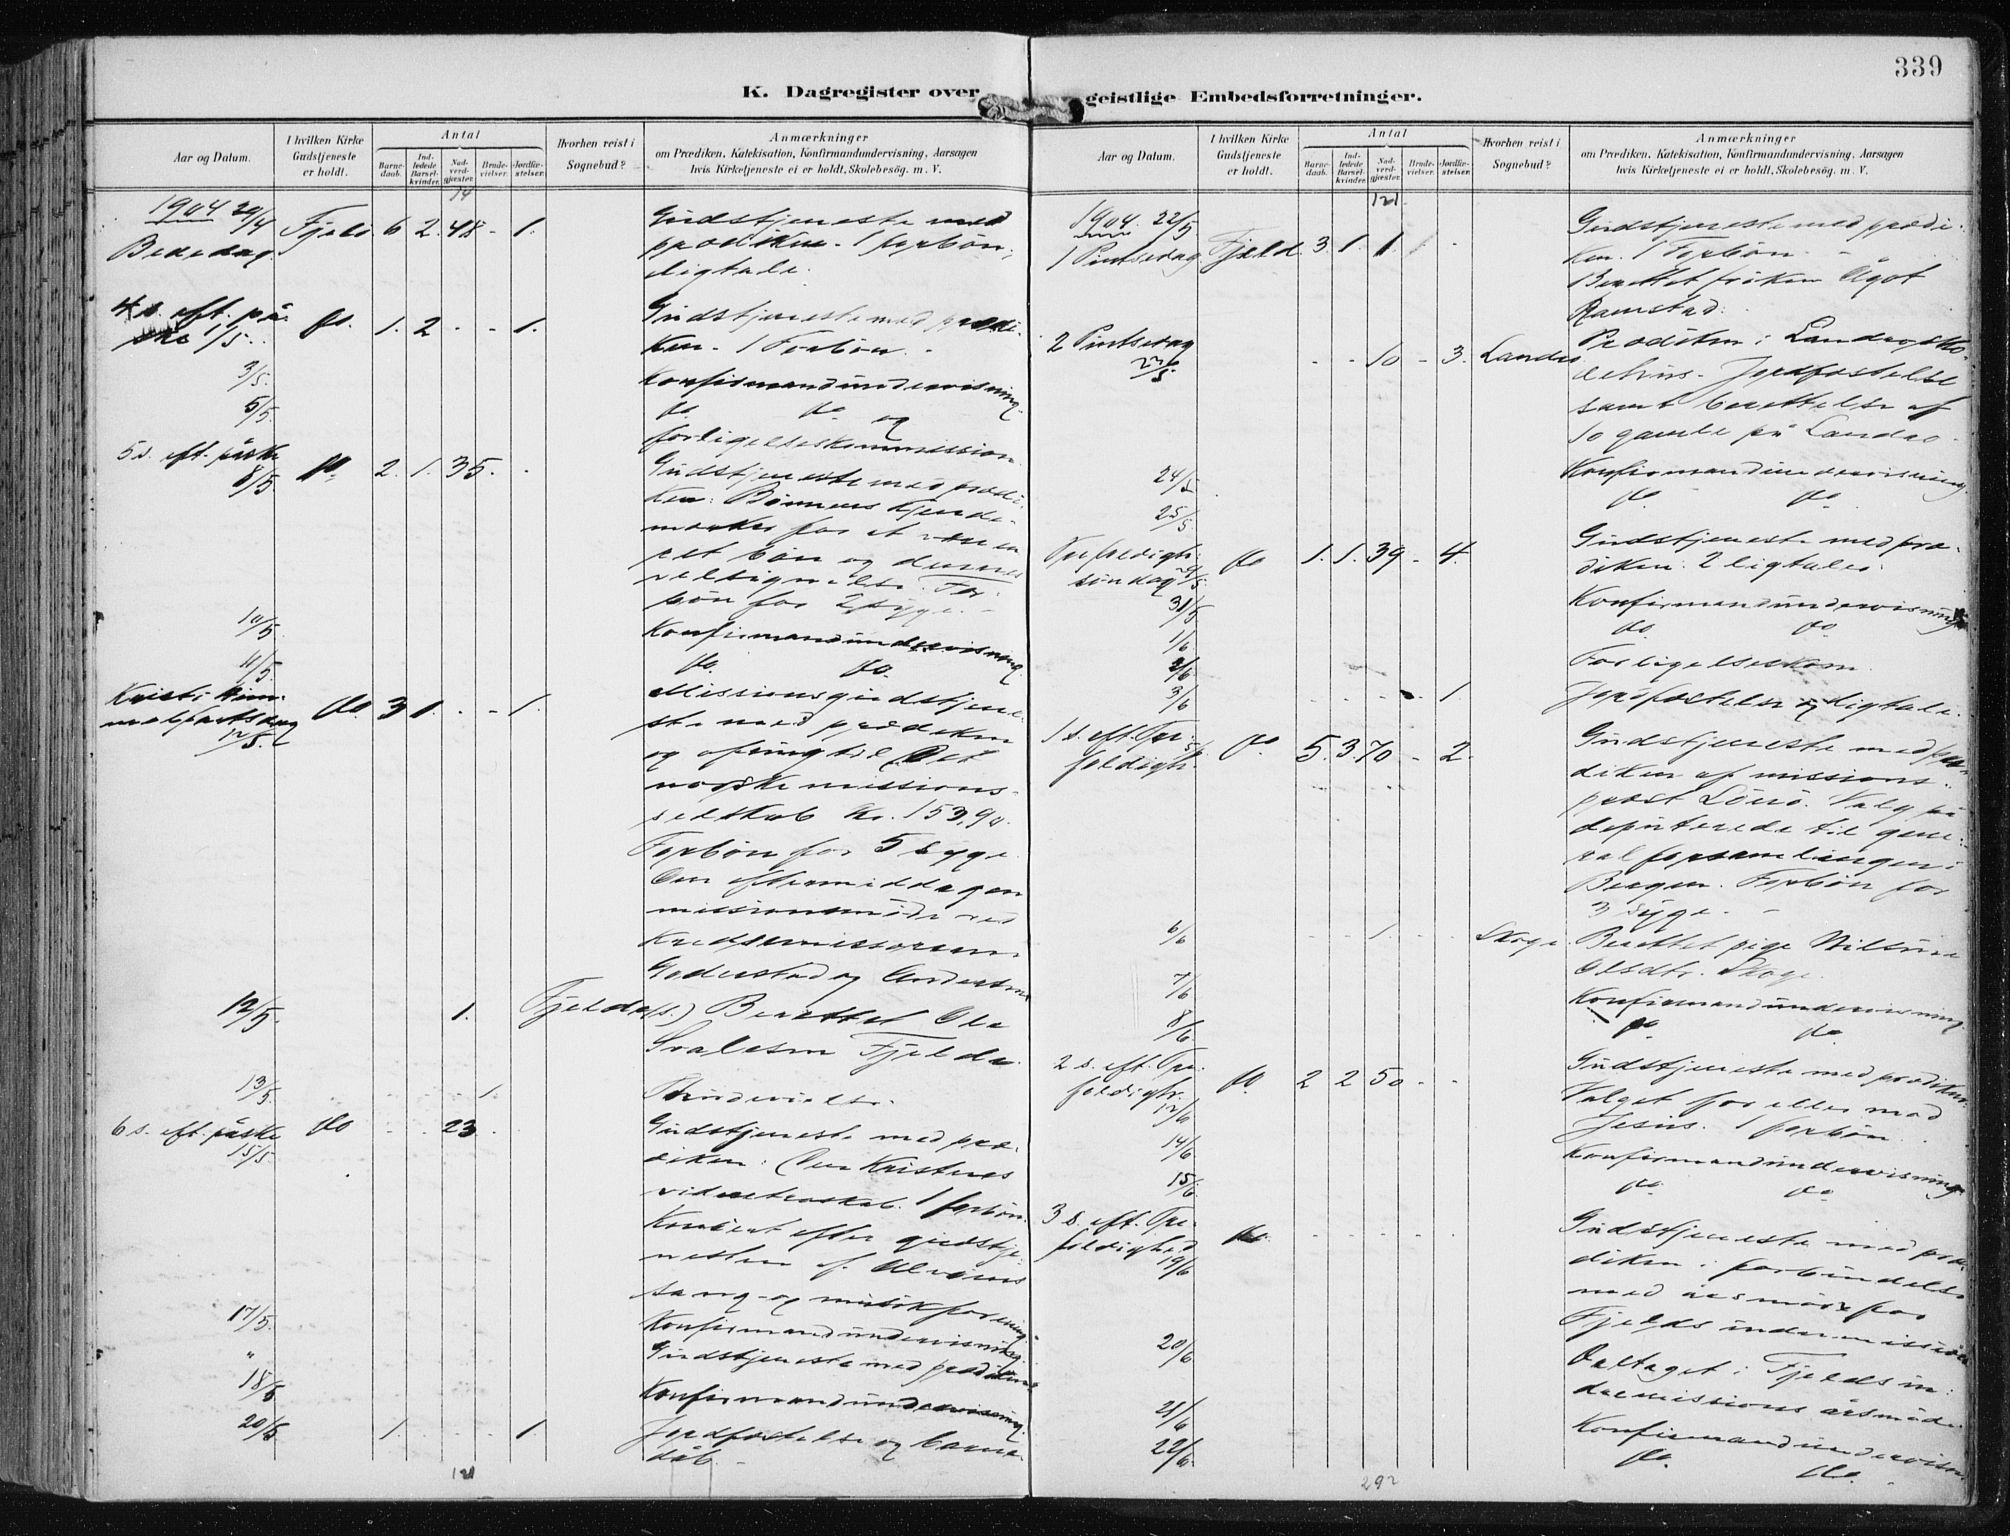 339
K. Dagregister over geistlige Embedsforretninger.
Aar og Datum.
I hvilken Kirke Gudstjeneste er holdt.
Antal
Barnedaab.
Indledede Barselkvinder.
Nadverdgjester.
Brudevielser.
Jordfæstelser.
Hvorhen reist i Sognebud?
Anmærkninger
om Prædiken, Katekisation, Konfirmandundervisning, Aarsagen
hvis Kirketjeneste ei er holdt, Skolebesøg. m. V.
14
1904 29/4 Fjeld 6 2 48 - 1. Gudstjeneste med
Bededag prædiken - 1 forbön,
ligtale.
4 s. eft. på- do. 1. 2 - - 1. Gudstjeneste med prædi-
ske 1/5. ken - 1 Forbön. -
3/5. Konfirmandundervisning.
5/5. do. do. og
forligelseskommission
5 s. eft. påske do. 2. 1. 35. - Gudstjeneste med prædi-
8/5. ken: Bönnens kjende-
merker for at være en
ret bön og dennes
velsignelse. For-
bön for 2 syge. -
10/5. Konfirmandundervisning
11/5. do. do.
Kristi him- do. 3 1. - - 1. Missionsgudstjene-
melfartsdag ste med prædiken
12/5. og ofring til Det
norske missions-
selskab kr. 153,90.
Forbön for 5 syge
Om eftermiddagen
missionsmöde ved
Kredsemissærerne
Goderstad og Andersen
12/5. 1. Fjelde (s.) Berettet Ole
Fjelde.
13/5. 1. Brudevielse.
6 s. eft. påske do - - 23 - Gudstjeneste med præ-
15/5. diken: Den Kristnes
1 forbön.
Koncert efter gudstje-
nesten af
sang- og musikforening.
17/5. Konfirmandundervisning
" Gudstjeneste med prædiken
18/5 Konfirmandundervisning
20/5 1. - - - 1. Jordfæstelse og barne-
dåb -
121
Aar og Datum.
I hvilken Kirke Gudstjeneste er holdt.
Antal
Barnedaab.
Indledede Barselkvinder.
Nadverdgjester.
Brudevielser.
Jordfæstelser.
Hvorhen reist i Sognebud?
Anmærkninger
om Prædiken, Katekisation, Konfirmandundervisning, Aarsagen
hvis Kirketjeneste ei er holdt, Skolebesøg. m. V.
121
1904. 22/5 Gudstjeneste med prædi-
1 Pintsedag Fjeld. 3. 1. 1. - ken. 1 Forbön. -
Berettet fröken Ågot
Ramstad.
2 Pintsedag - - 10 - 3. Landro Prædiken i Landro sko-
23/5 lehus. Jordfæstelse
samt berettelse af
10 gamle på Landro.
24/5 Konfirmandundervisning.
25/5. do. do.
Trefoldigh. do 1. 1. 39 - 4. Gudstjeneste med præ-
söndag 29/5. diken. 2 ligtaler.
31/5 Konfirmandundervisning
1/6 do. do.
2/6 Forligelseskom.
3/6 1. Jordfæstelse og ligtale.
1 s. eft. Tre- do. 5. 3. 70 - 2. Gudstjeneste med præ-
foldigh. 5/6 diken af missions-
præst Lönö. Valg på
deputerede til gene-
ralforsamlingen i
Bergen. Forbön for
3 syge. -
6/6 1. - - Skoge. Berettet pige
Olsdtr. Skoge.
7/6 Konfirmandundervisning
8/6. do. do.
2 s. eft. Tre- do. 2 2 50 - - Gudstjeneste med prædiken.
foldigh. Valget for eller mod
12/6 Jesus. 1 forbön.
14/6 Konfirmandundervisning
15/6 do. do
3 s. eft. Tre- do. Gudstjeneste med præ-
foldighed diken i forbindelse
19/6 med årsmöde for
Fjelds indremission
20/6 Deltaget i Fjelds in-
dremissions årsmöde
21/6 Konfirmandundervisn.
22/6 do. do.
292